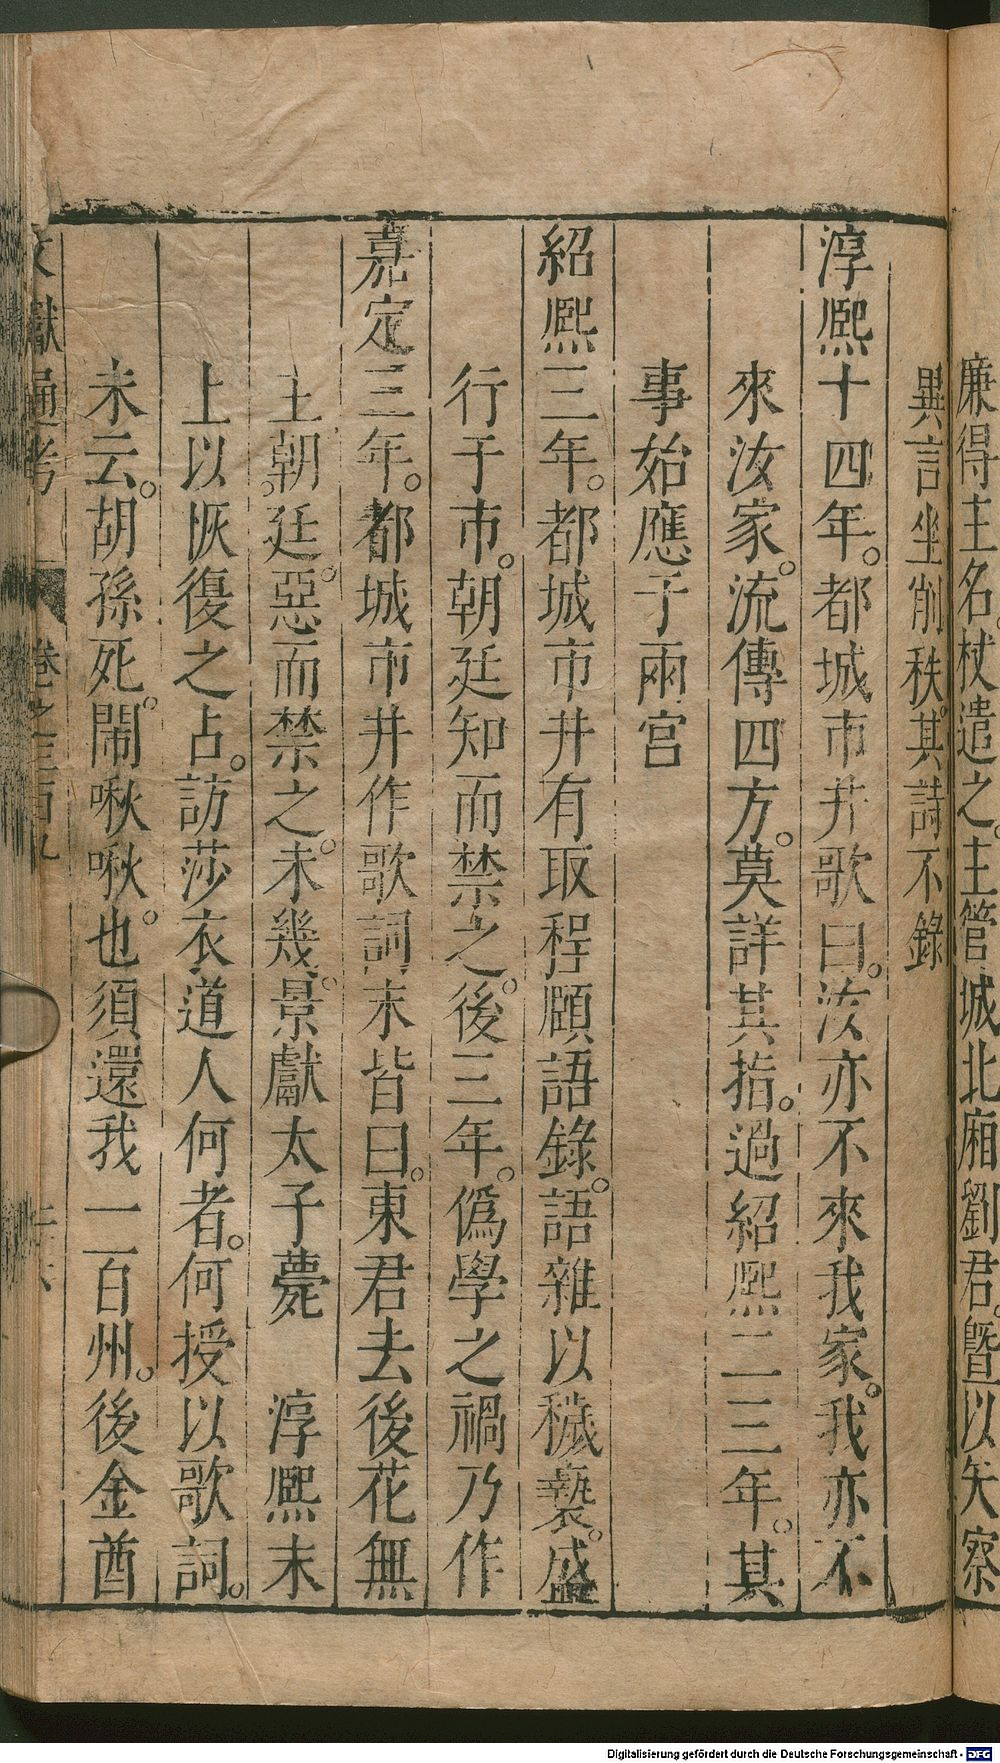 廉得主名。杖遣之。主管城北廂劉君。暨以失察
異言坐削秩。其詩不錄
淳熙十四年。都城市井歌曰。汝亦不來我家。我亦不
來汝家。流傳四方。莫詳其指。過紹熙二三年。其
事始應于兩宮
紹熙三年。都城市井有取程頤語錄。語雜以穢褻。盛
行于市。朝廷知而禁之。後三年。偽學之禍乃作
嘉定三年。都城市井作歌詞。末皆曰。東君去後花無
主。朝廷惡而禁之。未幾。景獻太子薨　淳熙末
上以恢復之占。訪莎衣道人何者。何授以歌詞。
末云。胡孫死。鬧啾啾。也須還我一百州。後金酋
文獻通考 卷之三百九
Digitalisierung gefördert durch die Deutsche Forschungsgemeinschaft - DFG